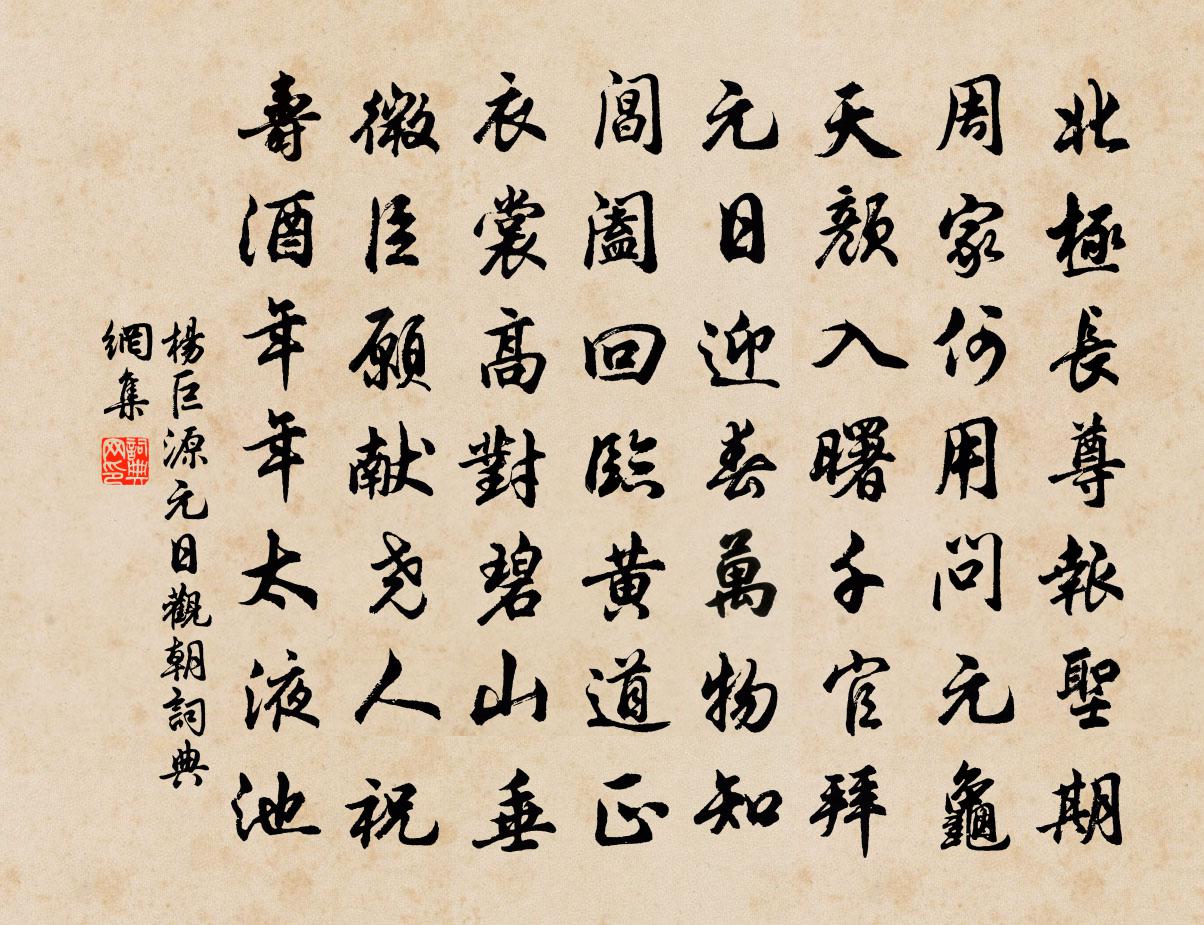 北極長尊報聖期
周家何用問元龜
天顏入曙千官拜
元日迎春萬物知
閶闔回臨黃道正
衣裳高對碧山垂
微臣願献尧人祝
壽酒年年太液池
楊巨源元日觀朝詞典
網集
詞典
网印